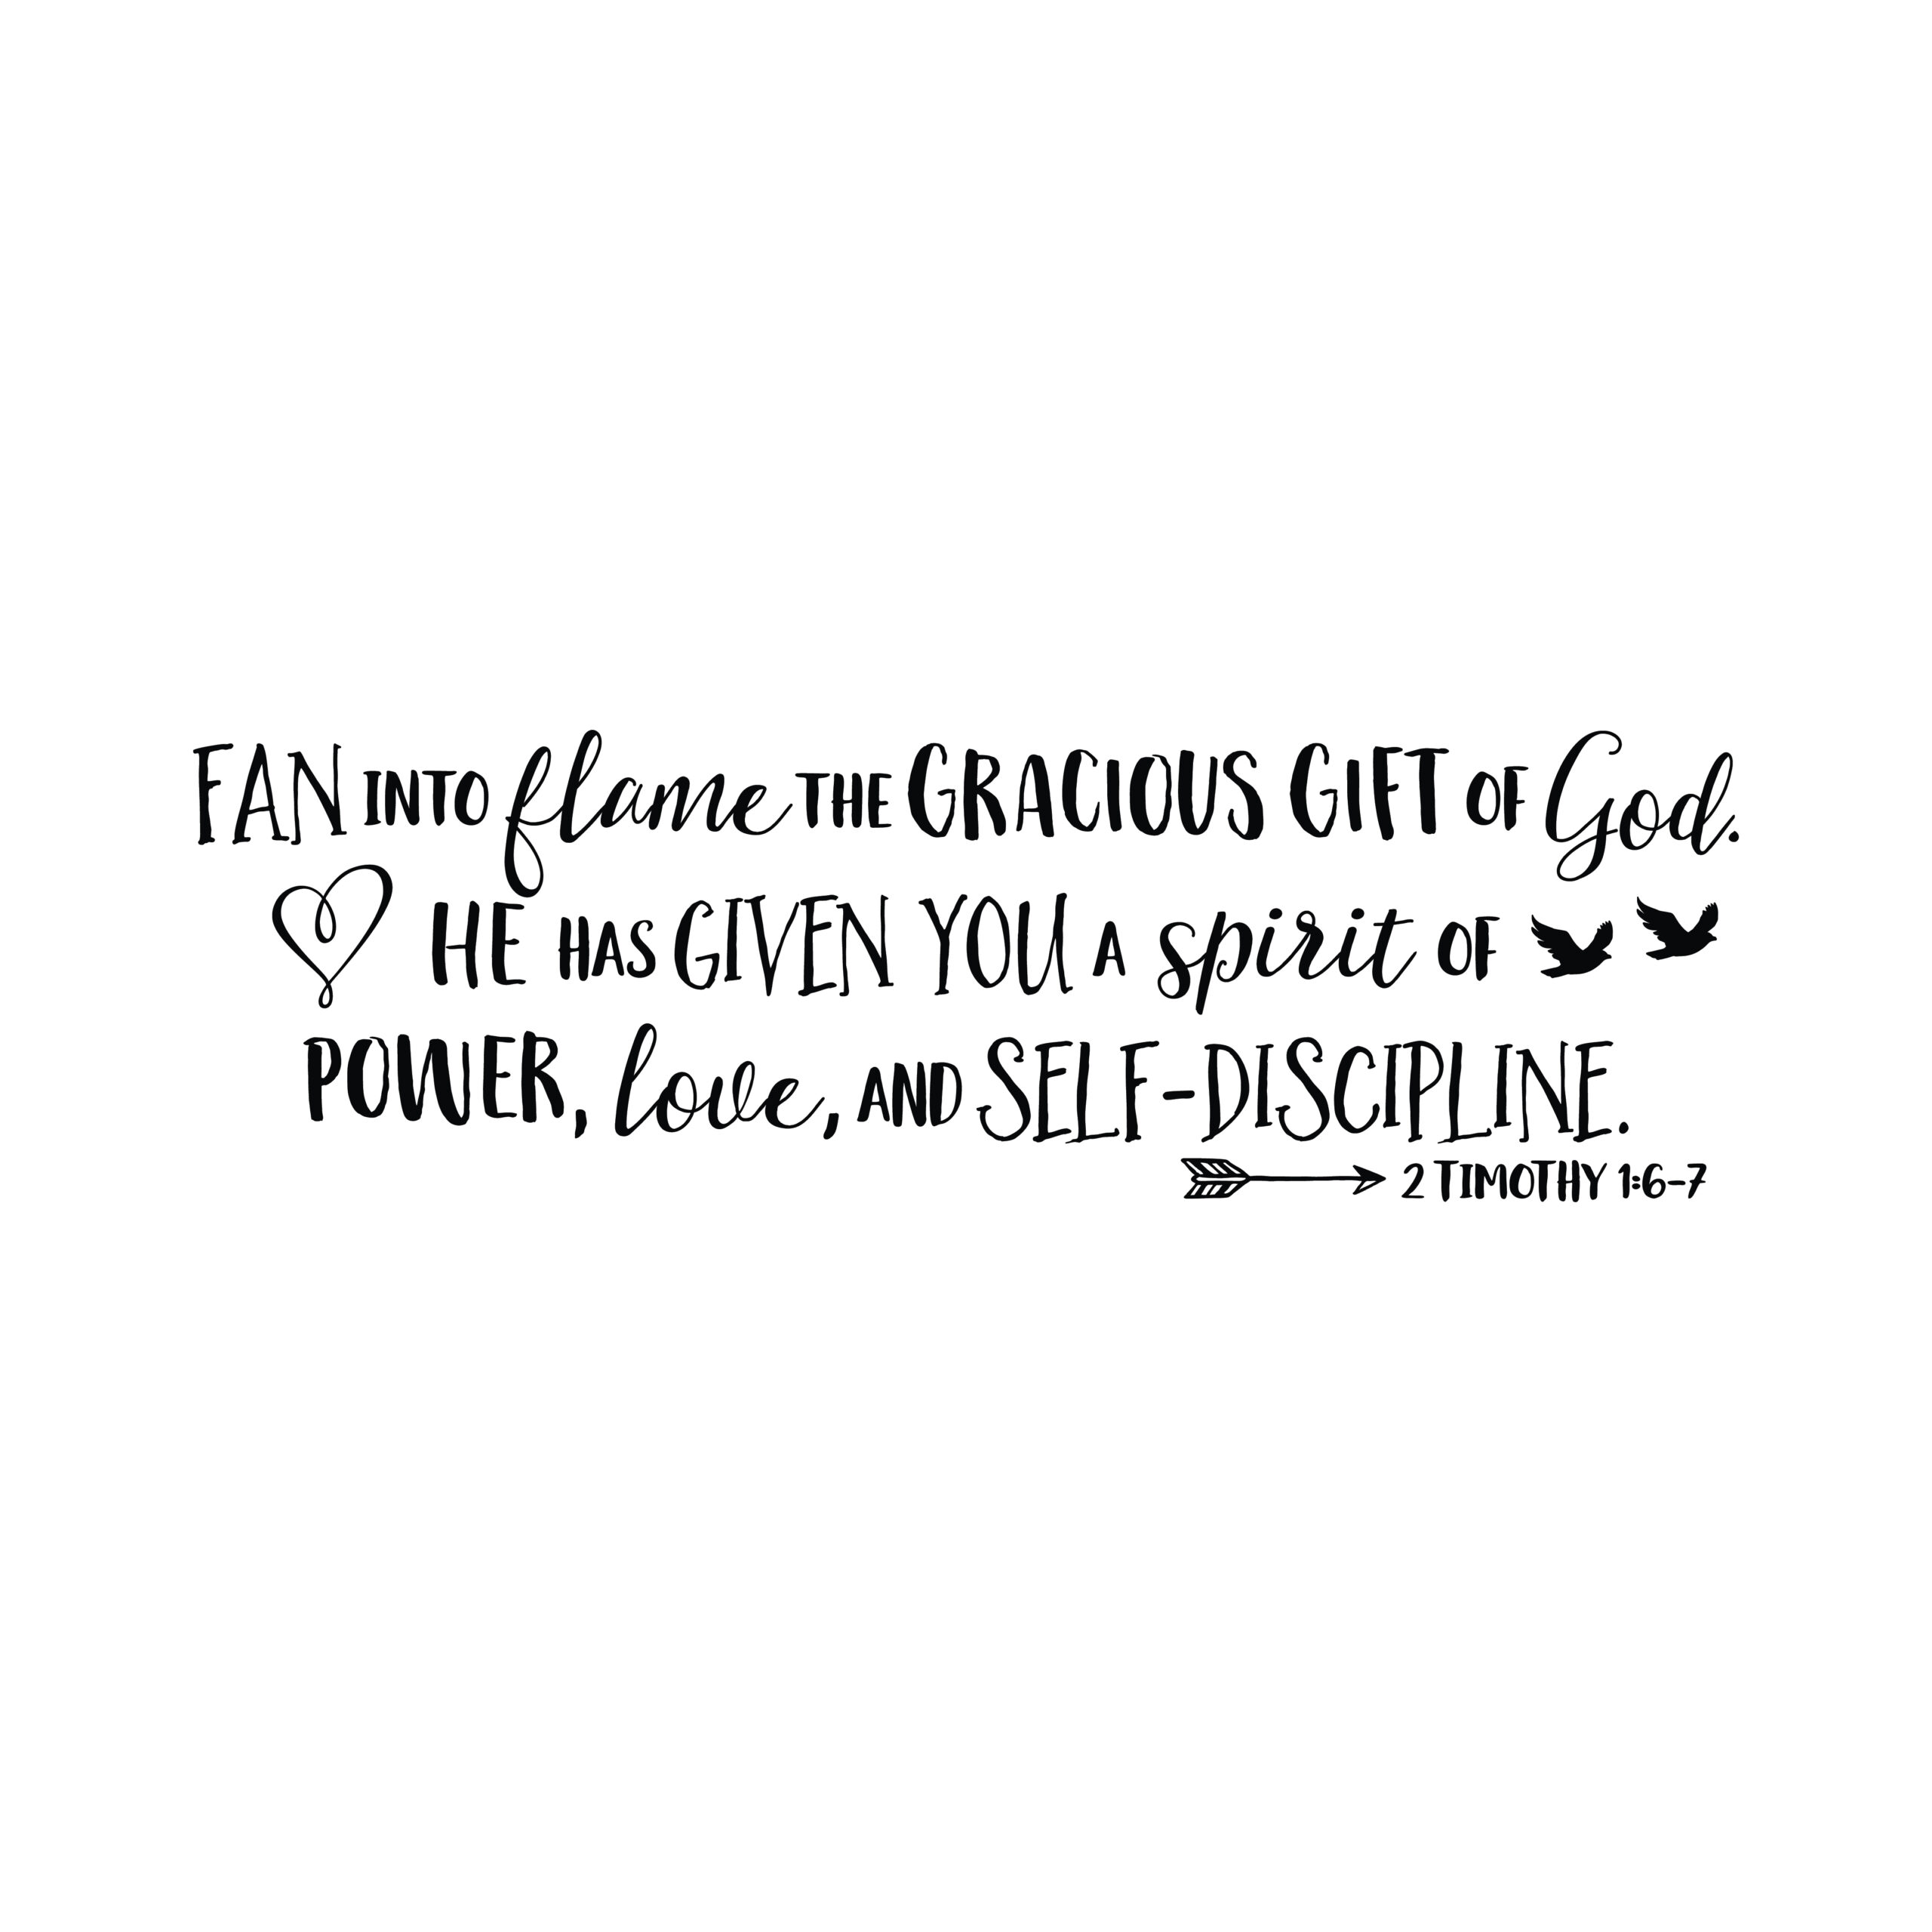 FAN INTO flame THE GRACIOUS GIFT OF God.
HE HAS GIVEN YOU A spirit OF
POWER, love, AND SELF-DISCIPLINE.
2 TIMOTHY 1:6-7